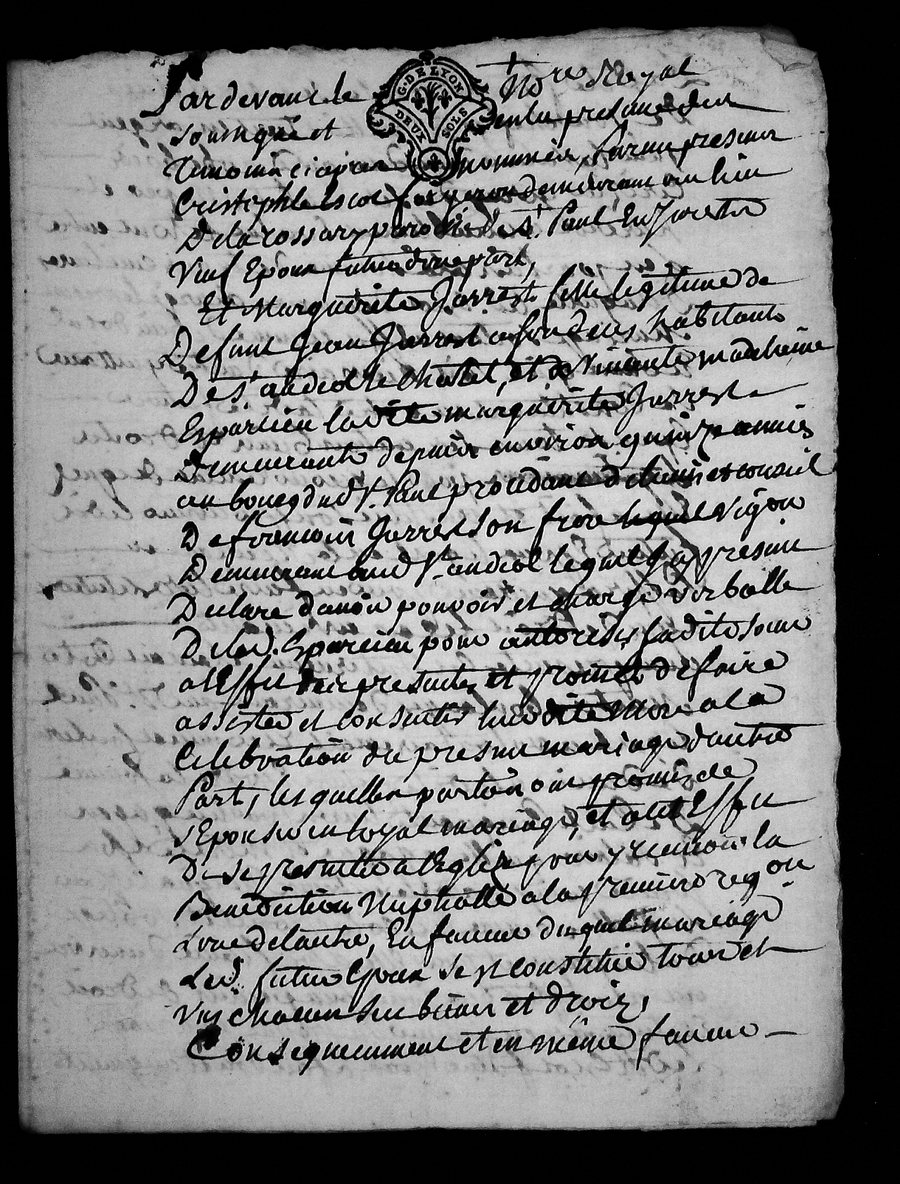 Pardevant le Nore Royal
G. DE LYON
DEUX SOLS
Soussigné et en la presence des
Temoins ci apres nommés, furent presens
Cristophle escot demeurant au lieu
De la parroisse de St. Paul En Jarest
Veuf Epoux futur d'une part,
Et Marguerite Jarrest fille legitime de
Defunt Jean Jarrest habitants
De St andeol le Chatel, et de Vivante madeleine
Esparcieu ladite marguerite Jarrest
demeurante depuis environ quinze années
au bourg dud. St. Paul procedante de et conseil
De francois Jarrest son frere
Demeurant aud St andeol lequel a present
Declare d'avoir pouvoir et charge verballe
De lad. Esparcieu pour autoriser sadite soeur
a l'Effet des presentes, et promet de faire
assister et consentir ladite mere a la
Celebration du present mariage d'autre
Part, les quelles parties ont promis de
s'Epouser en loyal mariage, et a cet Effet
De se presenter a l'Eglize pour y recevoir la
Benediction Nuptialle a la premiere req.on
L'une de l'autre, En faveur duquel mariage
Lesd. futurs Epoux se sont constitué tous et
Uns chacuns ses biens et droits,
Consequemment et en même faveur